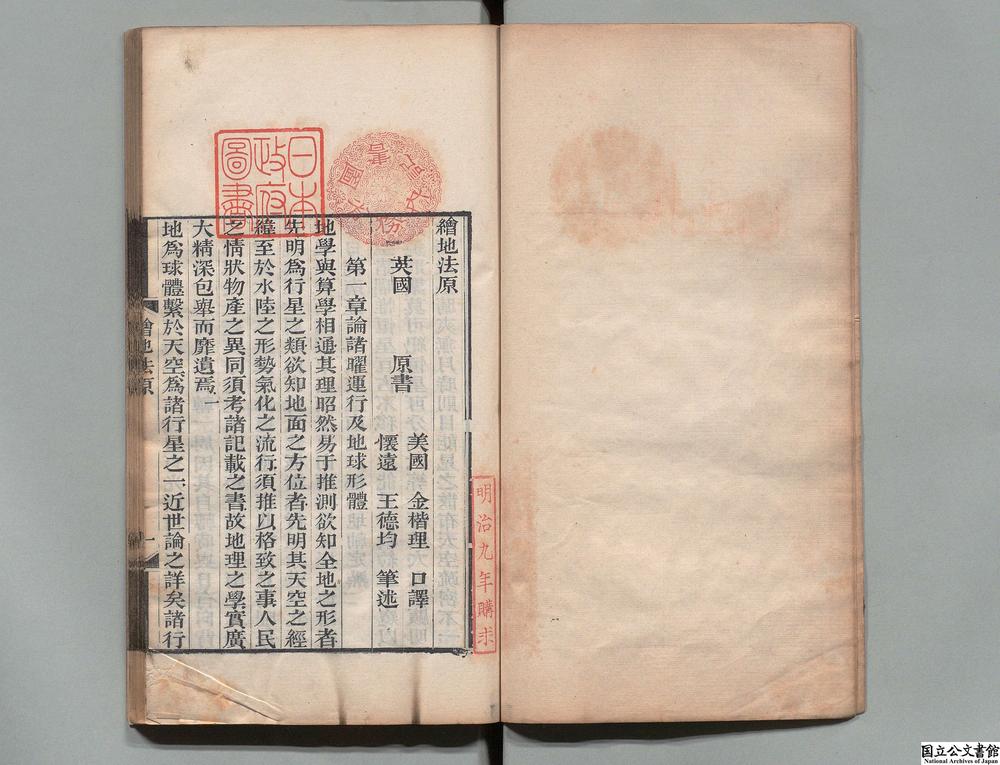 繪地法原
英國 原書
美國 金楷理 口譯
懷遠 王德均 筆述
第一章論諸曜運行及地球形體
地學與算學相通其理昭然易于推測欲知全地之形者
先明爲行星之類欲知地面之方位者先明其天空之經
緯至於水陸之形勢氣化之流行須推以格致之事人民
之情狀物產之異同須考諸記載之書故地理之學實廣
大精深包舉而靡遺焉
地爲球體繫於天空爲諸行星之一近世論之詳矣諸行
繪地法原
一
日本政府圖書
明治九年購求
国立公文書館
National Archives of Japan